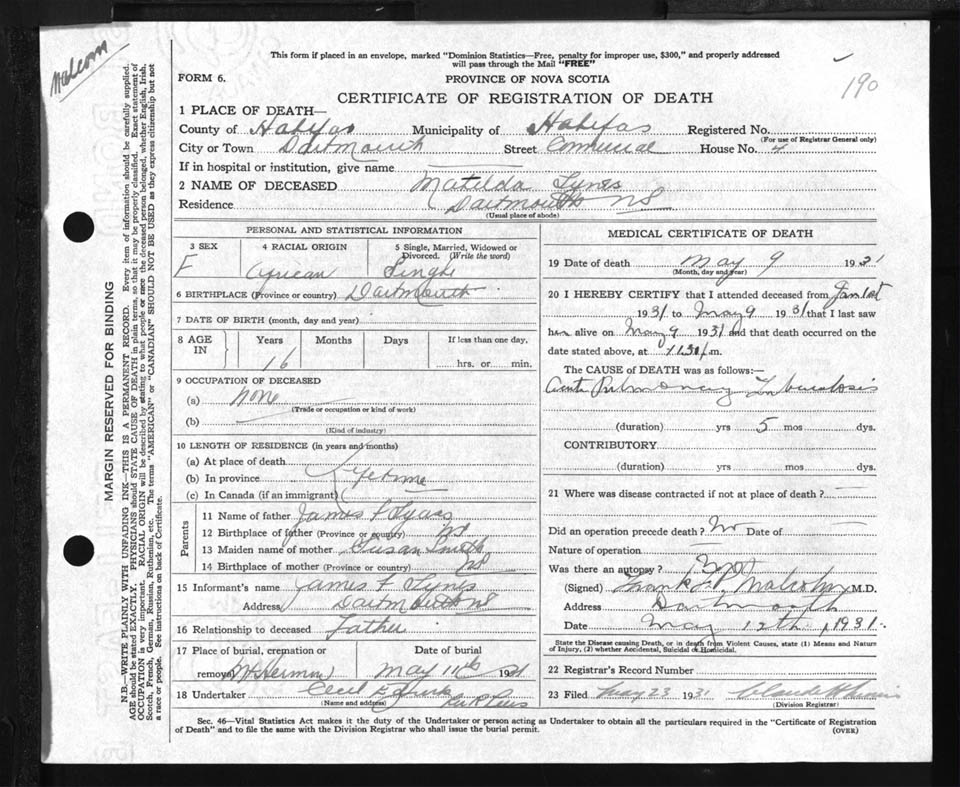 Malcom
190
This form if placed in an envelope, marked "Dominion Statistics—Free, penalty for improper use, $300," and properly addressed
will pass through the Mail "FREE"
FORM 6.
PROVINCE OF NOVA SCOTIA
CERTIFICATE OF REGISTRATION OF DEATH
MARGIN RESERVED FOR BINDING
N.B.—WRITE PLAINLY WITH UNFADING INK—THIS IS A PERMANENT RECORD. Every item of information should be carefully supplied.
AGE should be stated EXACTLY. PHYSICIANS should STATE CAUSE OF DEATH in plain terms, so that it may be properly classified. Exact statement of
OCCUPATION is very important. RACIAL ORIGIN will be described by stating to what people or race the deceased person belonged, whether English, Irish,
Scotch, French, German, Russian, Ruthenian, etc. The terms "AMERICAN" or "CANADIAN" SHOULD NOT BE USED as they express citizenship but not
a race or people. See instructions on back of Certificate.
1 PLACE OF DEATH—
County of Halifax Municipality of Halifax Registered No.
(For use of Registrar General only)
City or Town Dartmouth Street House No.
If in hospital or institution, give name
2 NAME OF DECEASED Matilda Tynes
Residence Dartmouth NS
(Usual place of abode)
PERSONAL AND STATISTICAL INFORMATION
3 SEX 4 RACIAL ORIGIN 5 Single, Married, Widowed or
Divorced. (Write the word)
F African Single
6 BIRTHPLACE (Province or country) Dartmouth
7 DATE OF BIRTH (month, day and year)
8 AGE IN Years Months Days If less than one day,
16 hrs. or min.
9 OCCUPATION OF DECEASED
(a) none
(Trade or occupation or kind of work)
(b)
(Kind of industry)
10 LENGTH OF RESIDENCE (in years and months)
(a) At place of death
(b) In province Lifetime
(c) In Canada (if an immigrant)
Parents
11 Name of father James F
12 Birthplace of father (Province or country) NS
13 Maiden name of mother Susan Smith
14 Birthplace of mother (Province or country) NS
15 Informant's name James F. Tynes
Address Dartmouth NS
16 Relationship to deceased Father
17 Place of burial, cremation or Date of burial
removal Mt Hermon May 11th 1931
18 Undertaker Cecil E
(Name and address)
MEDICAL CERTIFICATE OF DEATH
19 Date of death May 9 1931
(Month, day and year)
20 I HEREBY CERTIFY that I attended deceased from Jan 1st
1931 to May 9 1931 that I last saw
her alive on May 9 1931 and that death occurred on
date stated above, at m.
The CAUSE OF DEATH was as follows:—
Acute Pulmonary Tuberculosis
(duration) yrs 5 mos dys.
CONTRIBUTORY
(duration) yrs. mos. dys.
21 Where was disease contracted if not at place of death?
Did an operation precede death? No Date of
Nature of operation
Was there an autopsy?
(Signed) Frank Malcolm M.D.
Address Dartmouth
Date May 12th, 1931.
State the Disease causing Death, or in death from Violent Causes, state (1) Means and Nature
of Injury, (2) whether Accidental, Suicidal or Homicidal.
22 Registrar's Record Number
23 Filed May 23 1931
(Division Registrar)
Sec. 46—Vital Statistics Act makes it the duty of the Undertaker or person acting as Undertaker to obtain all the particulars required in the "Certificate of Registration
of Death" and to file the same with the Division Registrar who shall issue the burial permit.
(OVER)